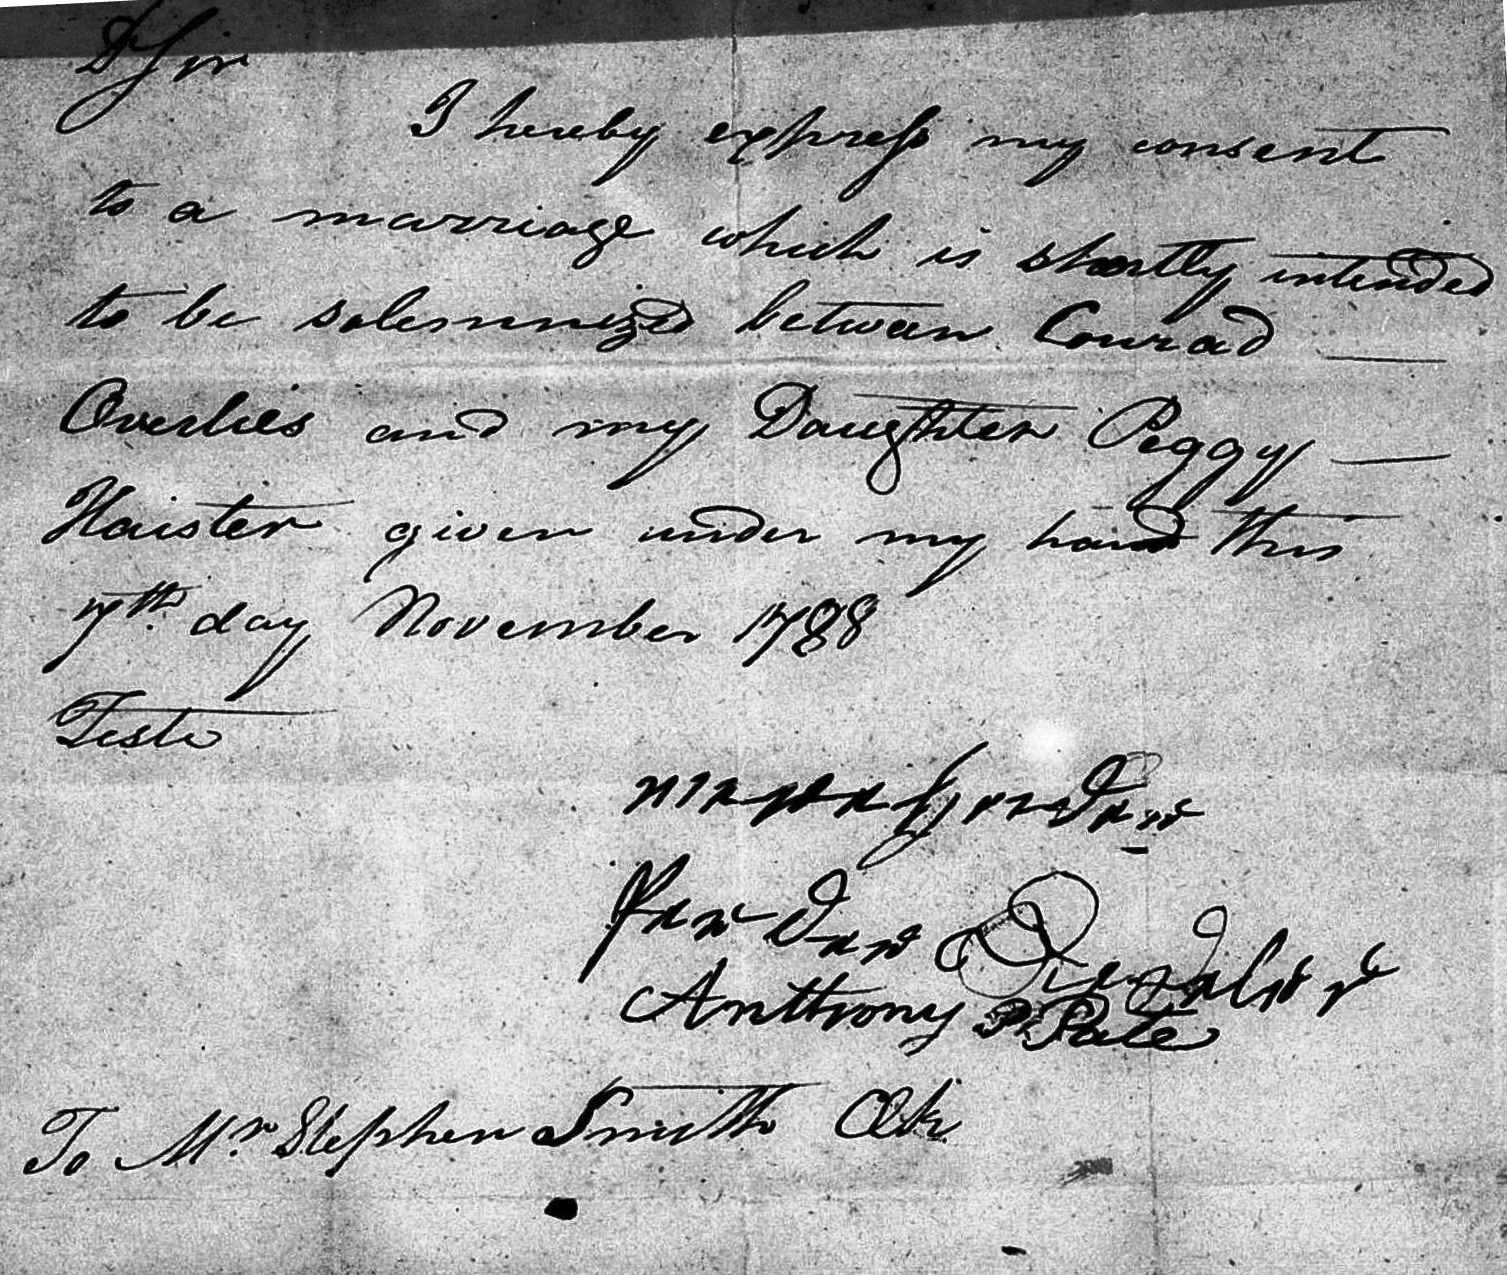 Dr Sir
I hereby express my consent
to a marriage which is shortly intended
to be solemnized between Conrad
Overlies and my Daughter Peggy
Haister given under my hand this
7th day November 1788
Teste
Anthony P. Pate
To Mr. Stephen Smith Clk